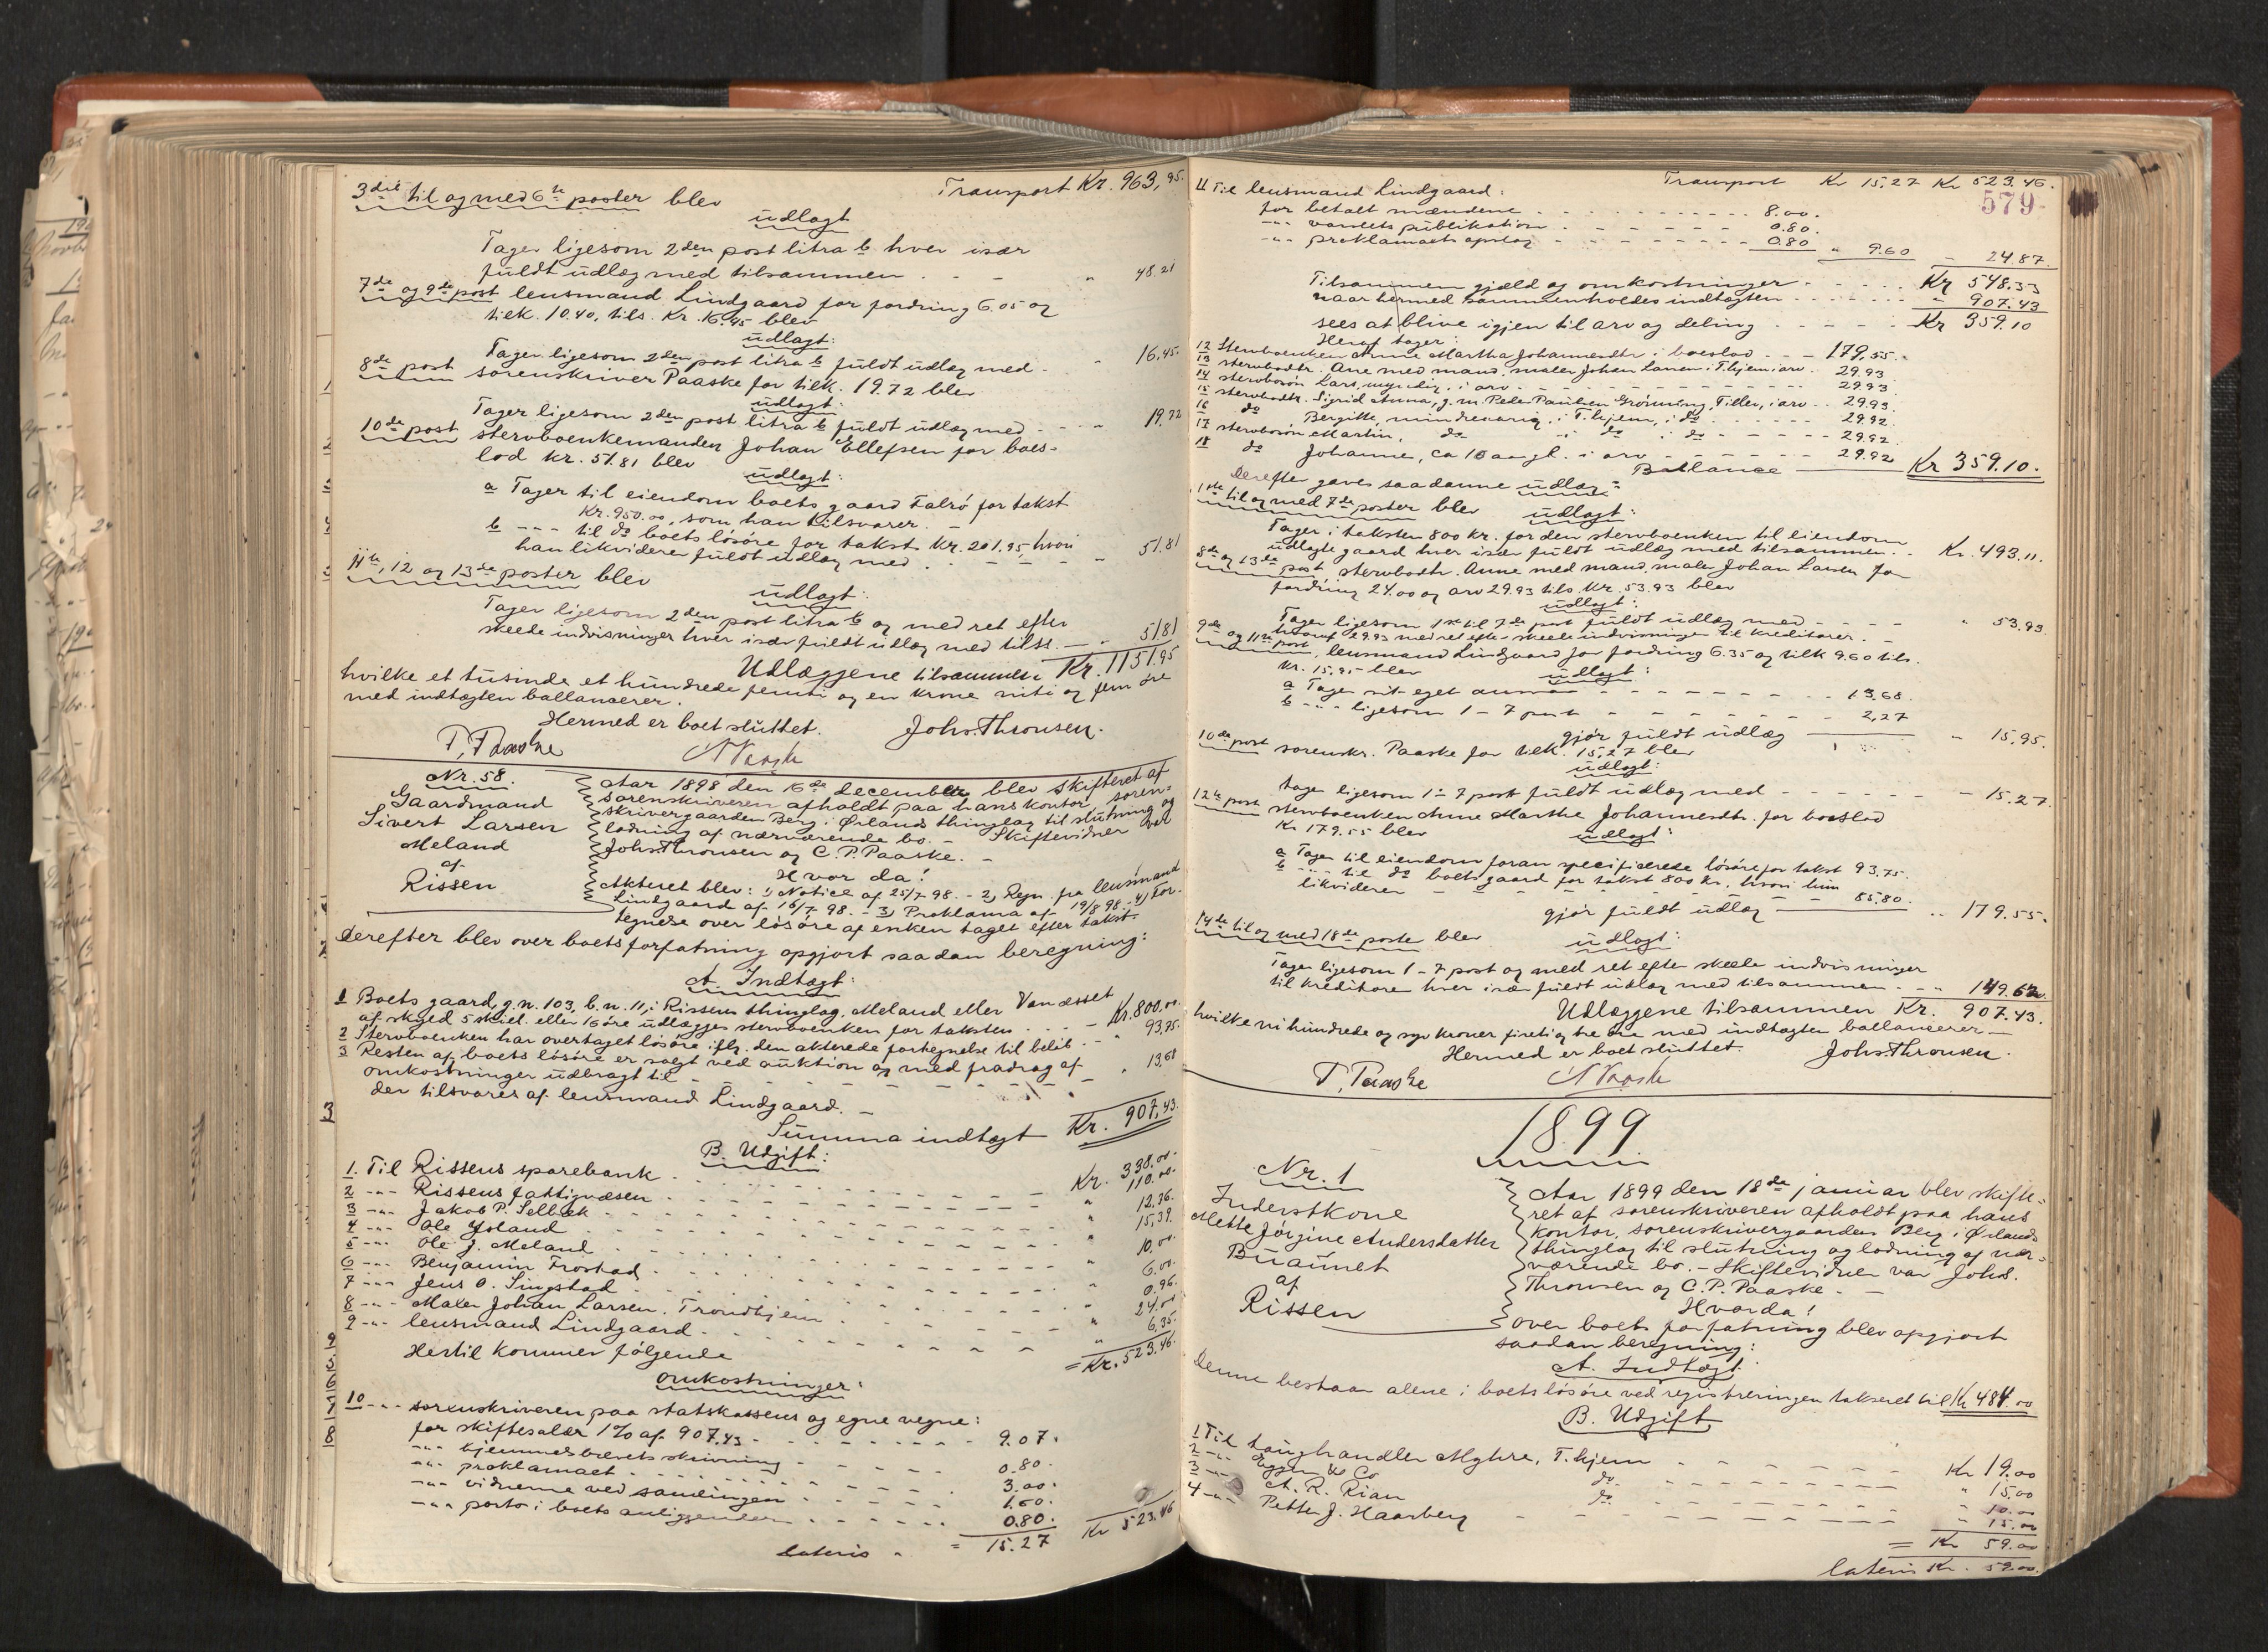 Transport Kr. 963,95.
3die til og med 6te poster blev
udlagt
Tager ligesom 2den post litra b hver især
fuldt udlæg med tilsammen . - - " 48.21
7de og 9de post lensmand Lindgaard for fordring 6.05 og
tilk. 10.40, tils. Kr. 16.45 blev
udlagt:
Tager ligesom 2den post litra b fuldt udlæg med - " 16.45.
8de post sorenskriver Paaske for tilk. 19.72 blev
udlagt:
Tager ligesom 2den post litra b fuldt udlæg med - - - " 19.72
10de post stervboenkemanden Johan Ellefsen for boes-
lod kr. 51.81 blev
udlagt:
a Tager til eiendom boets gaard Falrö for takst
Kr. 950.00, som han tilsvarer. -
b --- til do boets lösöre for takst Kr. 201.95, hvori
han likviderer fuldt udlæg med . - - - - " 51.81
11te, 12 og 13de poster blev
udlagt:
Tager ligesom 2den post litra b og med ret efter
skeede indvisninger hver især fuldt udlæg med tilss. - " 51.81
Udlæggene tilsammen Kr. 1151.95
hvilke et tusinde et hundrede femti og en krone niti og fem öre
med indtægten ballancerer.
Hermed er boet sluttet. Johs. Thronsen.
P. Paaske
Nr. 58.
Gaardmand
Sivert Larsen
Meland
af
Rissen
Aar 1898 den 16de december blev skifteret af
sorenskriveren afholdt paa hans kontor, soren-
skrivergaarden Berg i Ørlands thinglag til slutning og
lodning af nærværende bo. - Skiftevidner var
Johs. Thronsen og C. P. Paaske. -
Hvor da!
Akteret blev: 1) Notice af 25/7 98. - 2) Regn. fra lensmand
Lindgaard af 16/7 98. - 3) Proklama af 19/8 98. - 4) For-
tegnelse over lösöre af enken taget efter takst.
Derefter blev over boets forfatning opgjort saadan beregning:
A. Indtægt:
1 Boets gaard, g.n. 103, b.n. 11, i Rissens thinglag, Meland eller Vanæsset
af skyld 5 skil. eller 16 öre udlægges stervboenken for taksten . . . - Kr. 800.00.
2 Stervboenken har overtaget lösöre iflg. den akterede fortegnelse til belöb . - " 93.75.
3 Resten af boets lösöre er solgt ved auktion og med fradrag af
omkostninger udbragt til - - - - - - - " 13.68
der tilsvares af lensmand Lindgaard. -
Summa indtægt Kr. 907.43.
B. Udgift:
1. Til Rissens sparebank . - - - - - Kr. 338.00.
2 -"- Rissens fattigvæsen . - - - - - 110.00.
3 -"- Jakob P. Selbæk - - - - - " 12.36.
4 -"- Ole Ysland - - - - - " 15.39.
5 -"- Ole J. Meland . - - - - - " 10.00.
6 -"- Benjamin Frostad . - - - - - " 6.00.
7 -"- Jens O. Singstad . - - - - - " 0.96.
8 -"- Maler Johan Larsen. Trondhjem . - - - " 24.00
9 -"- lensmand Lindgaard - - - - - " 6.35.
Hertil kommer fölgende = Kr. 523.46.
omkostninger:
10 -"- sorenskriveren paa statskassens og egne vegne:
for skiftesalær 1% af 907.43 - - - - - 9.07.
-"- hjemmelsbrevets skrivning - - - - 0.80.
-"- proklamaet - - - - - 3.00.
-"- vidnerne ved samlingen . - - - - 1.60.
-"- porto i boets anliggender . - - - - 0.80.
lateris - = 15.27 Kr 523.46
579
Transport Kr 15,27 Kr 523.46.
11 Til lensmand Lindgaard:
for betalt mændene - - - - - 8.00.
-"- varslets publikation . - - - - 0.80.
-"- proklamaets opslag - - - - - 0.80 " 9.60 - 24.87.
Tilsammen gjæld og omkostninger - - - Kr 548.33
naar hermed sammenholdes indtægten - - - " 907.43
sees at blive igjen til arv og deling - - - - Kr 359.10
Heraf tager:
12 Stervboenken Anne Martha Johannesdtr. i boeslod - - - 179.55.
13 stervbodtr. Ane med mand, maler Johan Larsen i T.hjem i arv - 29.93.
14 stervbosön Lars, myndig, i arv - - - - - 29.93
15 stervbodtr. Sigrid Anna, g.m. Peder Paulsen Grönning, Tiller, i arv - 29.93.
16 do Bergitte, mindreaarig, i T.hjem, i do - - - 29.92.
17 stervbosön Martin, do i do i do - - - - 29.92.
18 do Johannes, ca 18 aar gl. i arv - - - - 29.92
Ballance Kr 359.10.
Derefter gaves saadanne udlæg:
1ste til og med 7de poster blev udlagt:
Tager i taksten 800 kr. for den stervboenken til eiendom
udlagte gaard hver især fuldt udlæg med tilsammen . - Kr. 493.11.
8de og 13de post stervbodtr. Anne med mand, maler Johan Larsen for
fordring 24.00 og arv 29.93 tils. Kr. 53.93 blev
udlagt:
Tager ligesom 1ste til 7de post fuldt udlæg med - - - - " 53.93.
hvoraf 29.93 med ret efter skeede indvisninger til kreditorer. -
9de og 11te post, lensmand Lindgaard for fordring 6.35 og tilk 9.60 tils.
Kr. 15.95 blev udlagt:
a Tager sit eget ansvar - - - - - 13.68.
b -"- ligesom 1-7 post - - - - - 2,27
gjör fuldt udlæg " 15.95.
10de post sorenskr. Paaske for tilk. 15,27 blev
udlagt:
tager ligesom 1-7 post fuldt udlæg med - - - - - 15.27.
12te post stervboenken Anne Marthe Johannesdtr. for boeslod
Kr 179.55 blev udlagt:
a Tager til eiendom foran specificerede lösöre for takst 93.75.
b --- til do boets gaard for takst 800 kr. hvori hun
likviderer - - - - - 85.80.
gjör fuldt udlæg - - 179.55.
14de til og med 18de poster blev udlagt:
Tager ligesom 1-7 post og med ret efter skeede indvisninger
til kreditorer hver især fuldt udlæg med tilsammen - - " 149.62.
Udlæggene tilsammen Kr. 907.43.
hvilke ni hundrede og syv kroner firetig tre öre med indtægten ballancerer -
Hermed er boet sluttet. Johs. Thronsen.
P. Paaske
1899
Nr. 1
Inderstkone
Mette Jørgine Andersdatter
Buaunet
af
Rissen
Aar 1899 den 18de januar blev skifte-
ret af sorenskriveren afholdt paa hans
kontor, sorenskrivergaarden Berg i Ørlands
thinglag til slutning og lodning af nær-
værende bo. - Skiftevidner var Johs.
Thronsen og C. P. Paaske. -
Hvorda!
Over boets forfatning blev opgjort
saadan beregning:
A. Indtægt.
Denne bestaar alene i boets lösöre ved registreringen takseret til Kr 484.00
B. Udgift.
1 Til taughandler Myhre, T.hjem - - - - Kr 19.00
2 -"- Eggen & Co do - - - - " 15.00
3 -"- A. R. Rian do - - - - " 10.00
4 -"- Petter J. Haarberg - - - - - " 15.00
= Kr 59.00
lateris Kr. 59.00.